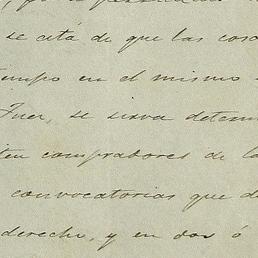 se está de que las cosa
tiempo en el mismo
Juez, se sirva determi
ten compradores de la
convocatorias que d
derecho, y en dos ó